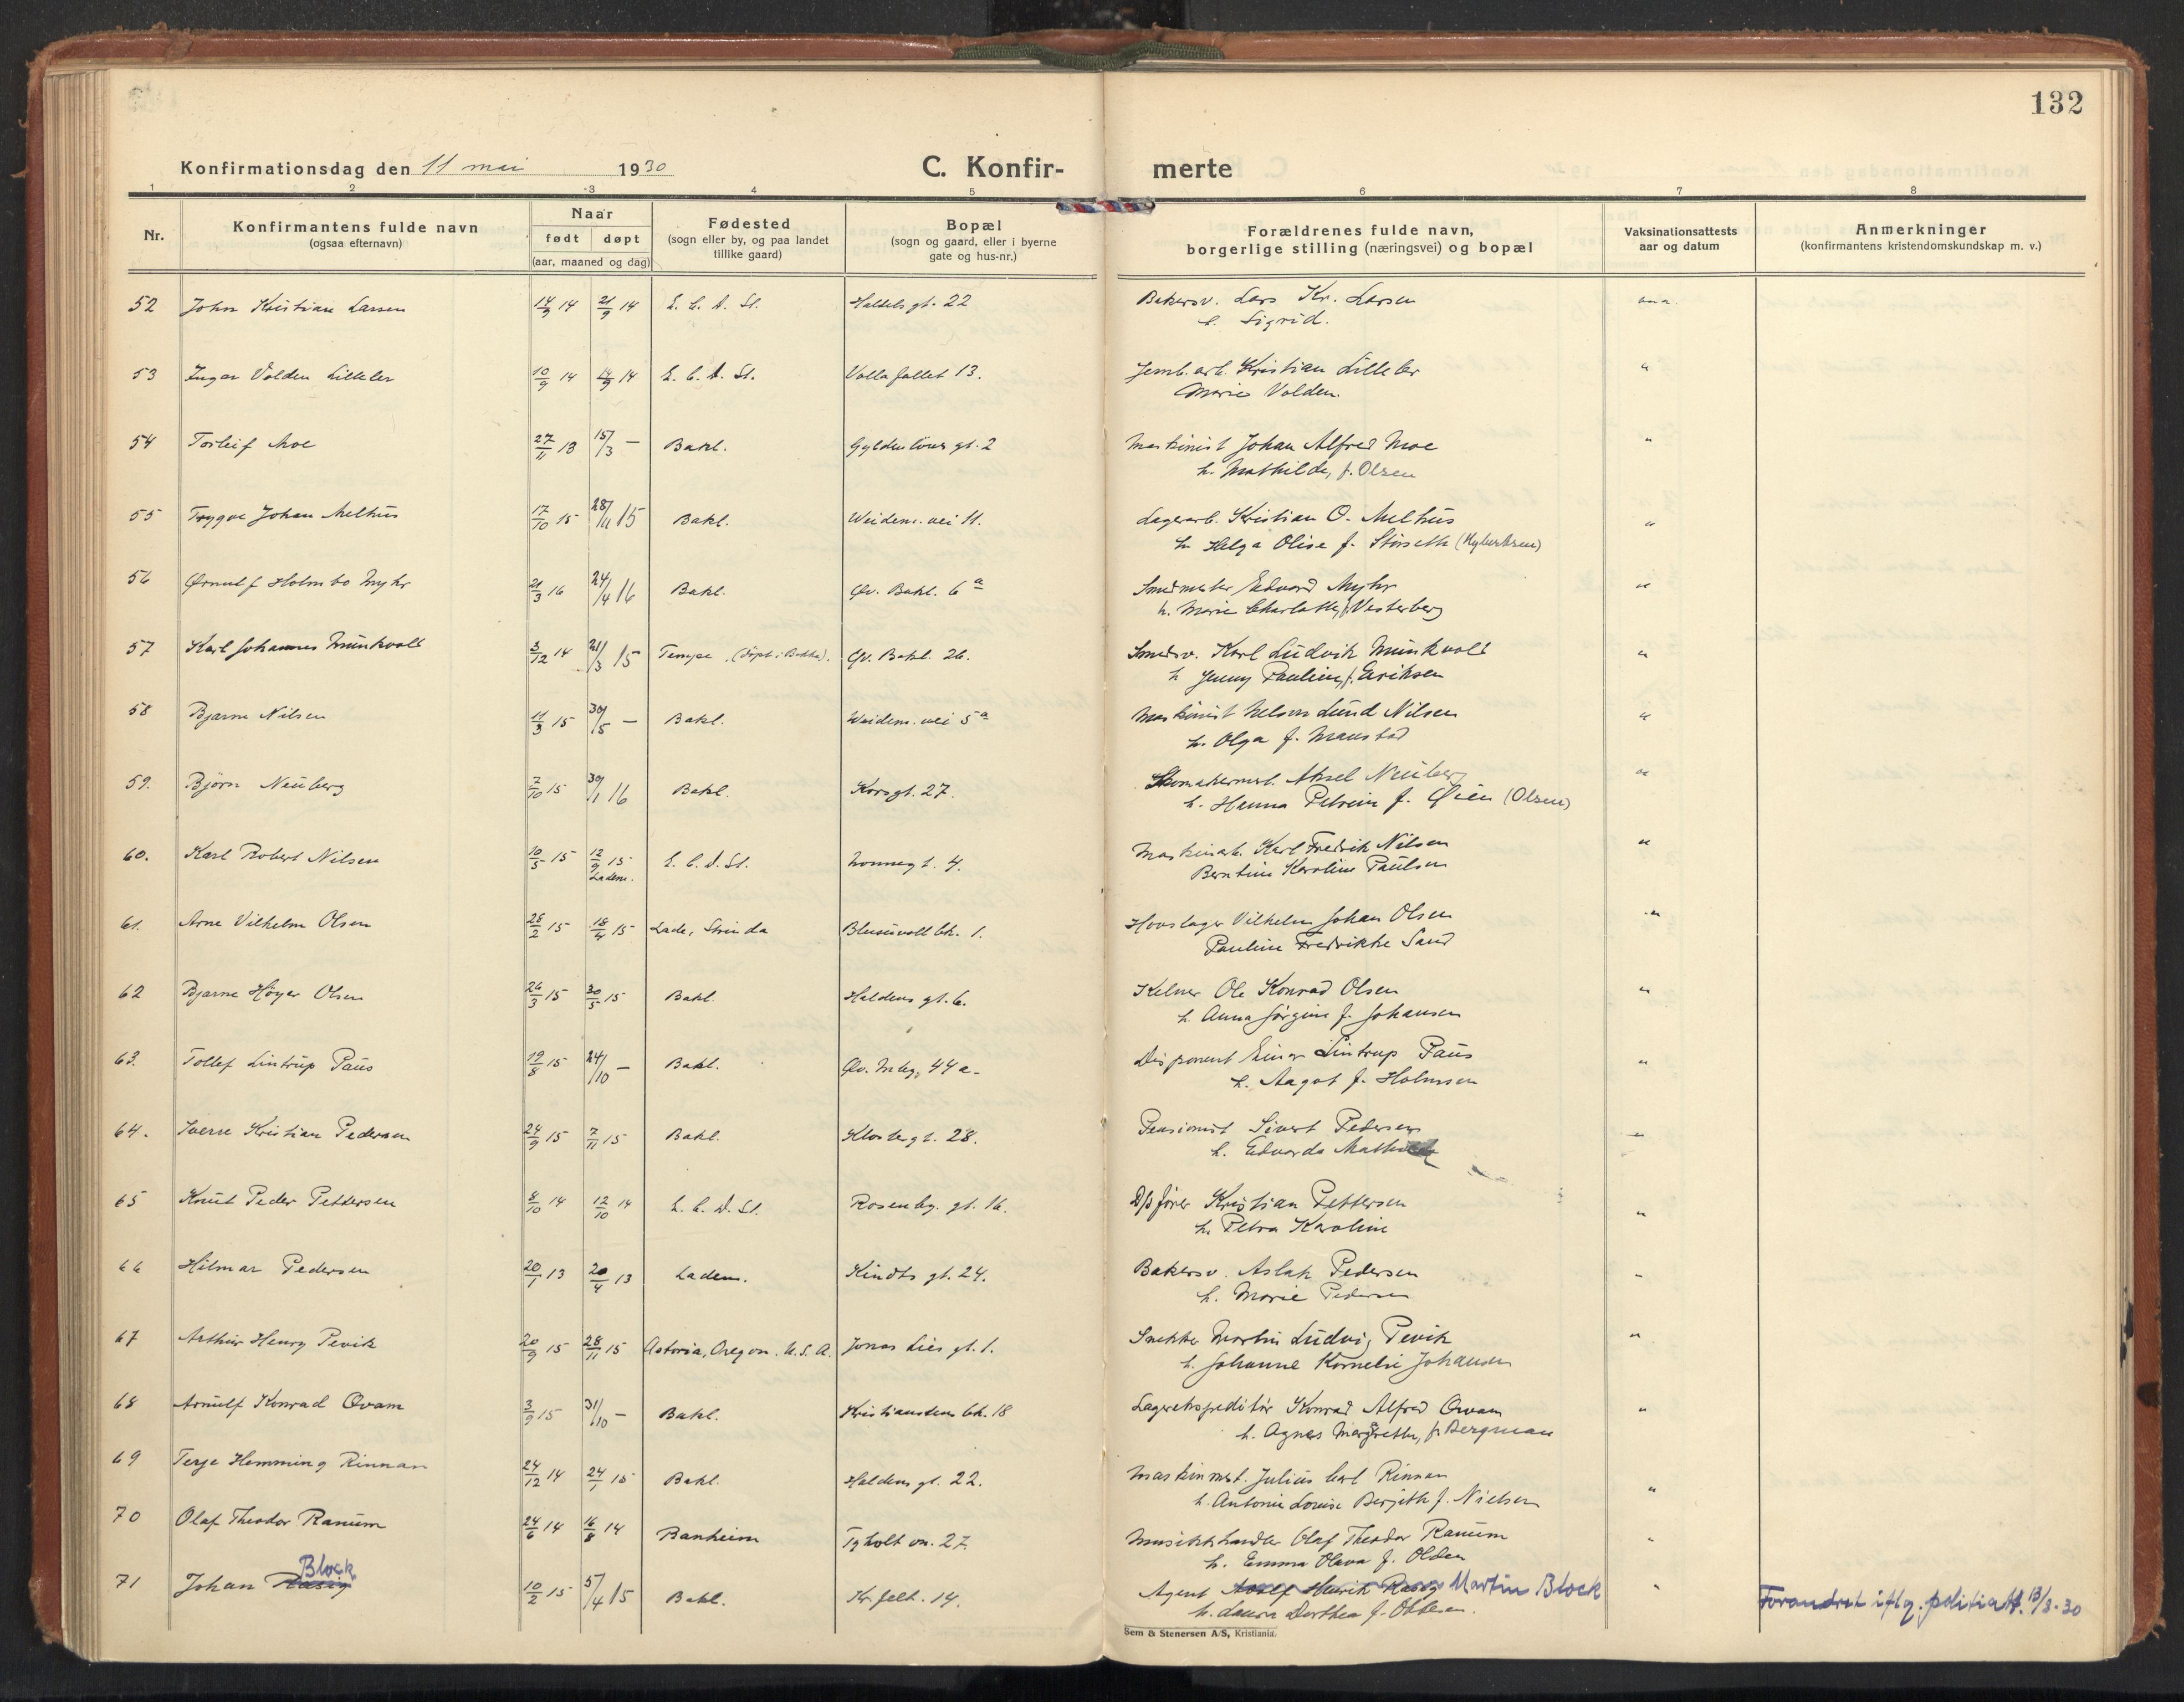 132
Konfirmationsdag den 11 mai 1930
C. Konfir- merte
1 2 3 4 5 6 7 8
Nr.
Konfirmantens fulde navn
(ogsaa efternavn)
Naar
født døpt
(aar, maaned og dag)
Fødested
(sogn eller by, og paa landet
tillike gaard)
Bopæl
(sogn og gaard, eller i byerne
gate og hus-nr.)
Forældrenes fulde navn,
borgerlige stilling (næringsvei) og bopæl
Vaksinationsattests
aar og datum
Anmerkninger
(konfirmantens kristendomskundskap m. v.)
52 John Kristian Larsen 14/9 14 21/9 14 E. C. D. St. gt. 22 Bakersv. Lars Kr. Larsen
h. Sigrid.
53 Ingar Volden Lilleler 10/9 14 14 E. C. D. St. Vollafallet 13. Jernb. arb. Kristian Lilleler "
Marie Volden.
54 Torleif Moe 27/11 13 15/3 — Bakl. Gyldenløves gt. 2 Maskinist Johan Alfred Moe "
h. Mathilde, f. Olsen
55 Trygve Johan Melhus 17/10 15 28/11 15 Bakl. Weidem. vei 11. Lagerarb. Kristian O. Melhus "
h. Helga Olise f. Størseth
56 Ørnulf Holmbo Myhr 21/3 16 24/4 16 Bakl. Øv. Bakl. 6 a Smedmester Edvard Myhr "
h. Marie Charlotte, f. Vesterberg
57 Karl Johannes Munkvold 3/12 14 21/3 15 Tempe. (døpt i Bakke). Øv. Bakl. 26. Smedsv. Karl Ludvik Munkvold "
h. Jenny Pauline, f. Eriksen
58 Bjarne Nilsen 11/3 15 30/5 — Bakl. Weidem. vei 5 a Maskinist Nelson Lund Nilsen "
h. Olga f. Maustad
59. Bjørn Neuberg 7/10 15 30/1 16 Bakl. Korsgt. 27. Skomakermest. Aksel Neuberg "
h. Hanna Petrine f. Øien (Olsen)
60. Karl Robert Nilsen 10/5 15 12/9 15 Ladem. E. C. D. St. Nonnegt. 4. Maskinarb. Karl Fredrik Nilsen "
Berntine Karoline Paulsen
61. Arne Vilhelm Olsen 28/2 15 18/4 15 Lade, Strinda Blusuvoll bk. 1. Hovslager Vilhelm Johan Olsen "
Pauline Fredrikke Sand
62 Bjarne Høyer Olsen 26/3 15 30/5 15 Bakl. Haldens gt. 6. Kelner Ole Konrad Olsen "
h. Anna Jørgine f. Johansen
63. Tollef Lintrup Paus 19/8 15 24/10 — Bakl. Øv. Mlbg. 44 a. Disponent Einar Lintrup Paus "
h. Aagot f. Holmsen
64. Sverre Kristian Pedersen 24/9 15 7/11 15 Bakl. Klostergt. 28. Pensionist Sivert Pedersen "
h. Edvarda
65 Knut Peder Pettersen 8/10 14 12/10 14 E. C. D. St. Rosenbg. gt. 16. D/s fører Kristian Pettersen "
h. Petra Karoline
66 Hilmar Pedersen 20/1 13 20/4 13 Ladem. Kindts gt. 24. Bakersv. Aslak Pedersen "
h. Marie Pedersen
67 Arthur Henry Pevik 20/9 15 28/11 15 Astoria, Oregon. U.S.A. Jonas Lies gt. 1. Snekker Martin Ludvig Pevik "
h. Johanne Kornelie Johansen
68 Arnulf Konrad Qvam 3/9 15 31/10 — Bakl. Kristiansten bk. 18 Lagerekspeditør Konrad Alfred Qvam "
h. Agnes Margrethe, f. Bergman
69 Terje Hemming Rinnan 24/12 14 24/1 15 Bakl. Haldens gt. 22. Maskinmst. Julius Carl Rinnan "
h. Antonie Louise Bergith f. Nielsen
70 Olaf Theodor Ranum 24/6 14 16/8 14 Banheim Tyholt vn. 27. Musikkhandler Olaf Theodor Ranum "
h. Emma Olava f. Olden
71 Johan Rasig Block 10/2 15 5/4 15 Bakl. Kr. felt. 14. Agent Adolf Henrik Rasig Martin Block " Forandret iflg. politiatt. 13/3-30
h. Laura Dorthea f. Ottesen.
Sem & Stenersen A/S, Kristiania.